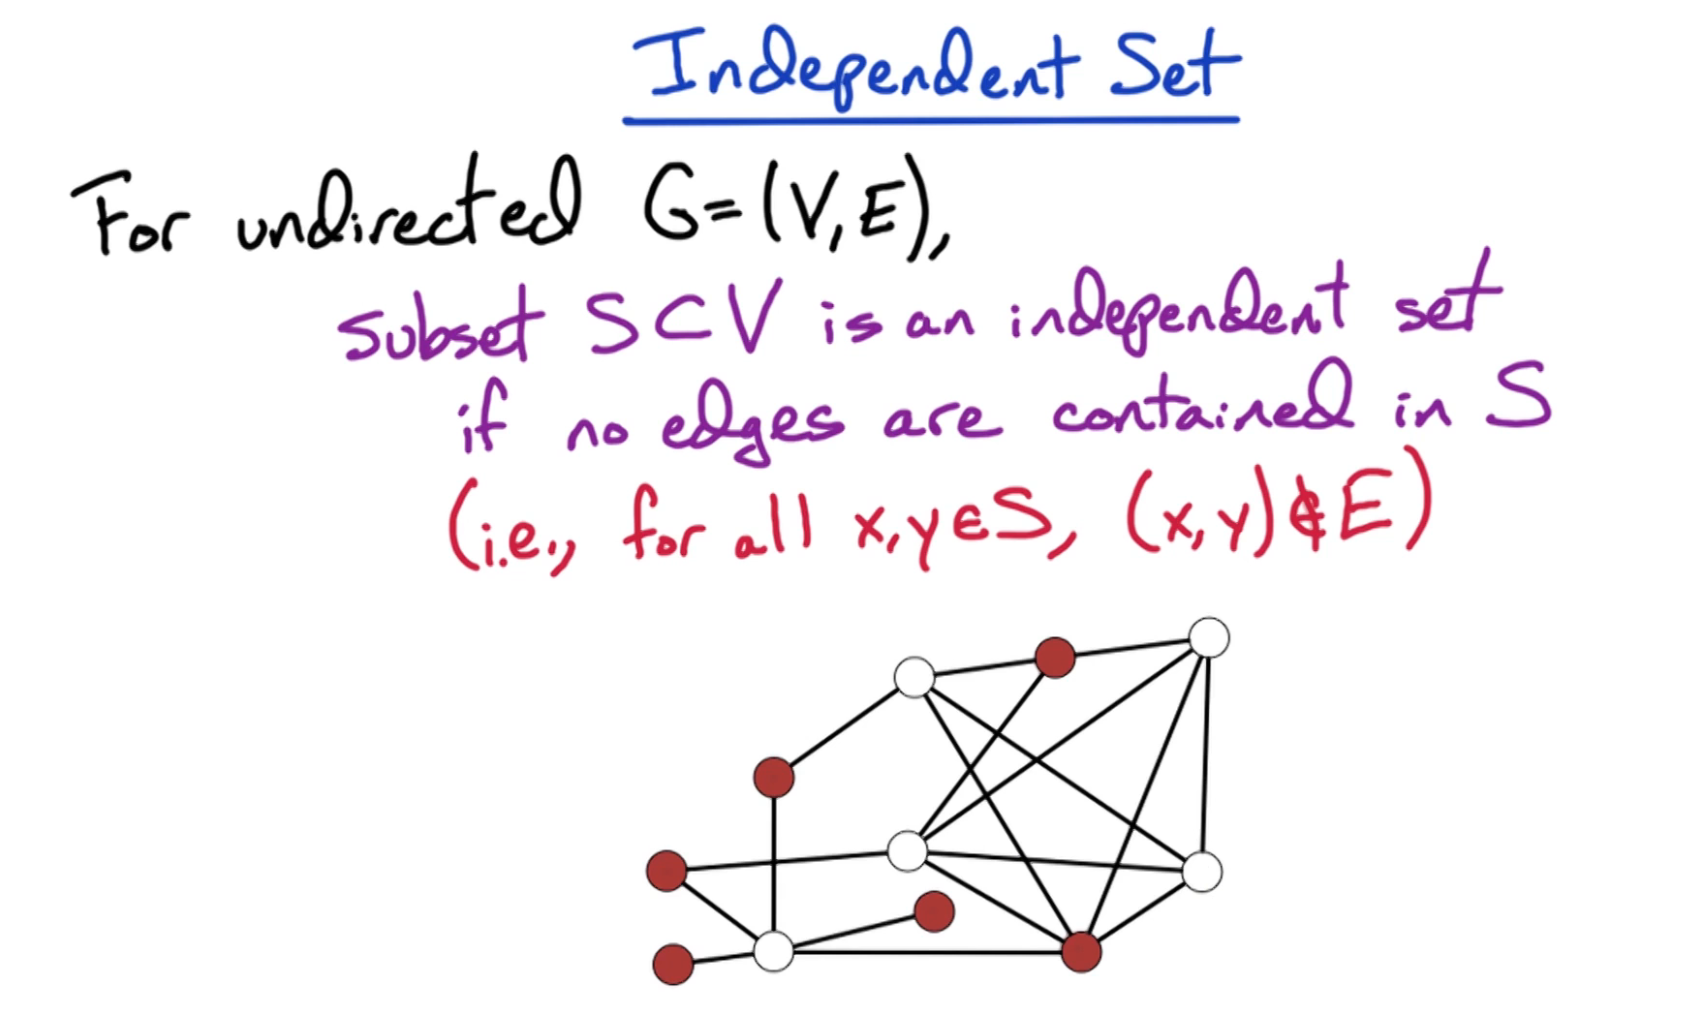 Independent Set
For undirected G=(V,E),
subset S⊂V is an independent set
if no edges are contained in S
(i.e., for all x,y∈S, (x,y)∉E)